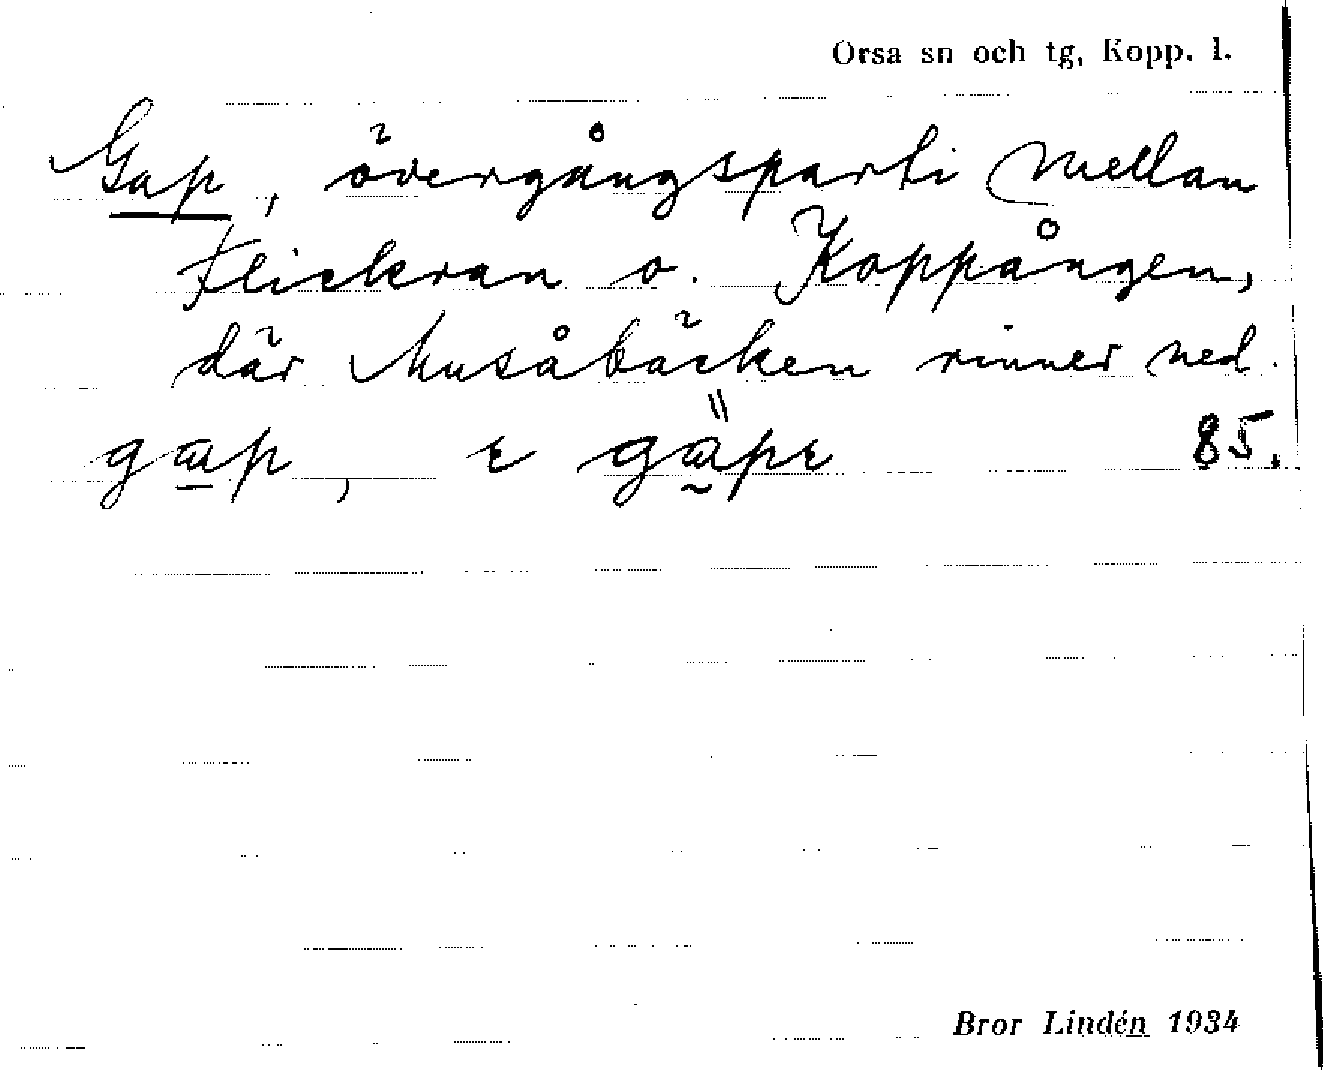 Orsa sn och tg, Kopp. l.
Gap, övergångsparti mellan
Flickran o. Koppången,
där Musåbäcken rinner ned.
gap, ɛ gäpɛ 85.
Bror Lindén 1934